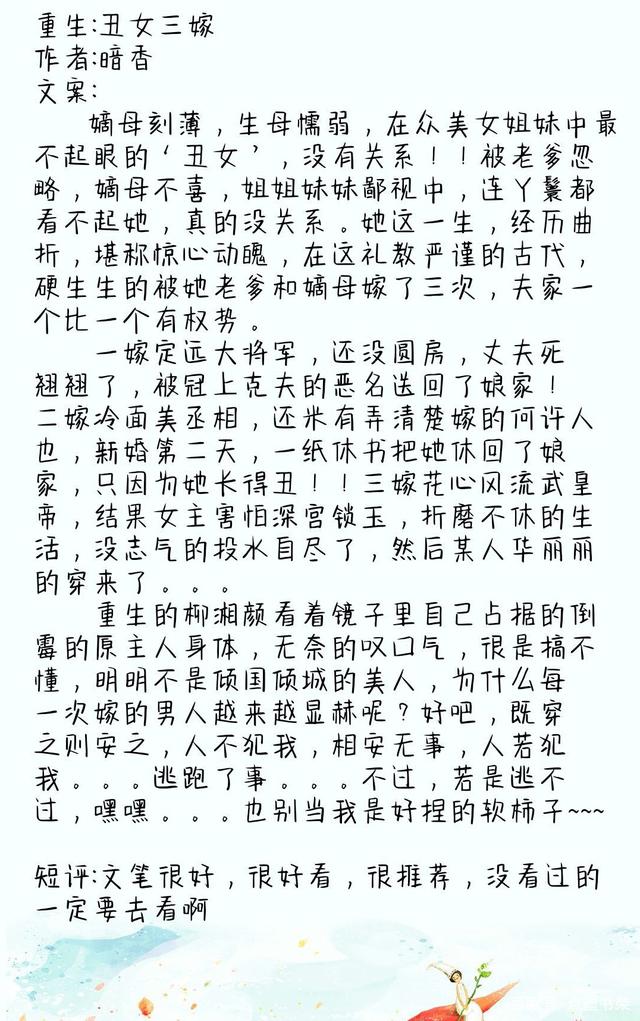 重生:丑女三嫁
作者:暗香
文案:
嫡母刻薄，生母懦弱，在众美女姐妹中最
不起眼的‘丑女’，没有关系！！被老爹忽
略，嫡母不喜，姐姐妹妹鄙视中，连丫鬟都
看不起她，真的没关系。她这一生，经历曲
折，堪称惊心动魄，在这礼教严谨的古代，
硬生生的被她老爹和嫡母嫁了三次，夫家一
个比一个有权势。
一嫁定远大将军，还没圆房，丈夫死
翘翘了，被冠上克夫的恶名送回了娘家！
二嫁冷面美丞相，还米有弄清楚嫁的何许人
也，新婚第二天，一纸休书把她休回了娘
家，只因为她长得丑！！三嫁花心风流武皇
帝，结果女主害怕深宫锁玉，折磨不休的生
活，没志气的投水自尽了，然后某人华丽丽
的穿来了。。。
重生的柳湘颜看着镜子里自己占据的倒
霉的原主人身体，无奈的叹口气，很是搞不
懂，明明不是倾国倾城的美人，为什么每
一次嫁的男人越来越显赫呢？好吧，既穿
之则安之，人不犯我，相安无事，人若犯
我。。。逃跑了事。。。不过，若是逃不
过，嘿嘿。。。也别当我是好捏的软柿子~~~
短评:文笔很好，很好看，很推荐，没看过的
一定要去看啊